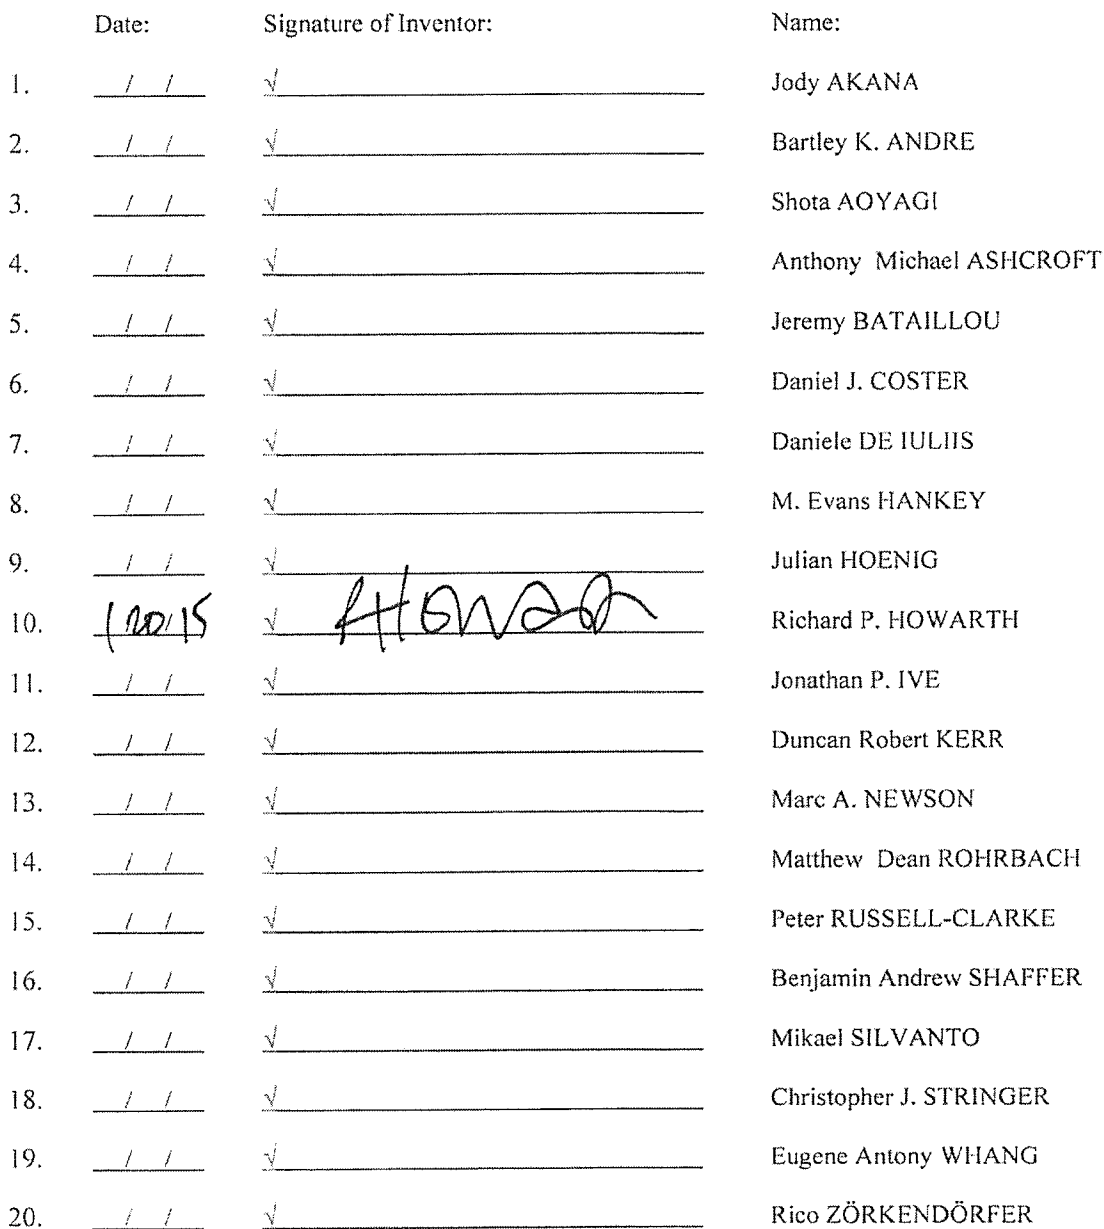 Date: Signature of Inventor: Name:
1. / / √ Jody AKANA
2. / / √ Bartley K. ANDRE
3. / / √ Shota AOYAGI
4. / / √ Anthony Michael ASHCROFT
5. / / √ Jeremy BATAILLOU
6. / / √ Daniel J. COSTER
7. / / √ Daniele DE IULIIS
8. / / √ M. Evans HANKEY
9. / / √ Julian HOENIG
10. 1/20/15 √ RHOWARTH Richard P. HOWARTH
11. / / √ Jonathan P. IVE
12. / / √ Duncan Robert KERR
13. / / √ Marc A. NEWSON
14. / / √ Matthew Dean ROHRBACH
15. / / √ Peter RUSSELL-CLARKE
16. / / √ Benjamin Andrew SHAFFER
17. / / √ Mikael SILVANTO
18. / / √ Christopher J. STRINGER
19. / / √ Eugene Antony WHANG
20. / / √ Rico ZÖRKENDÖRFER